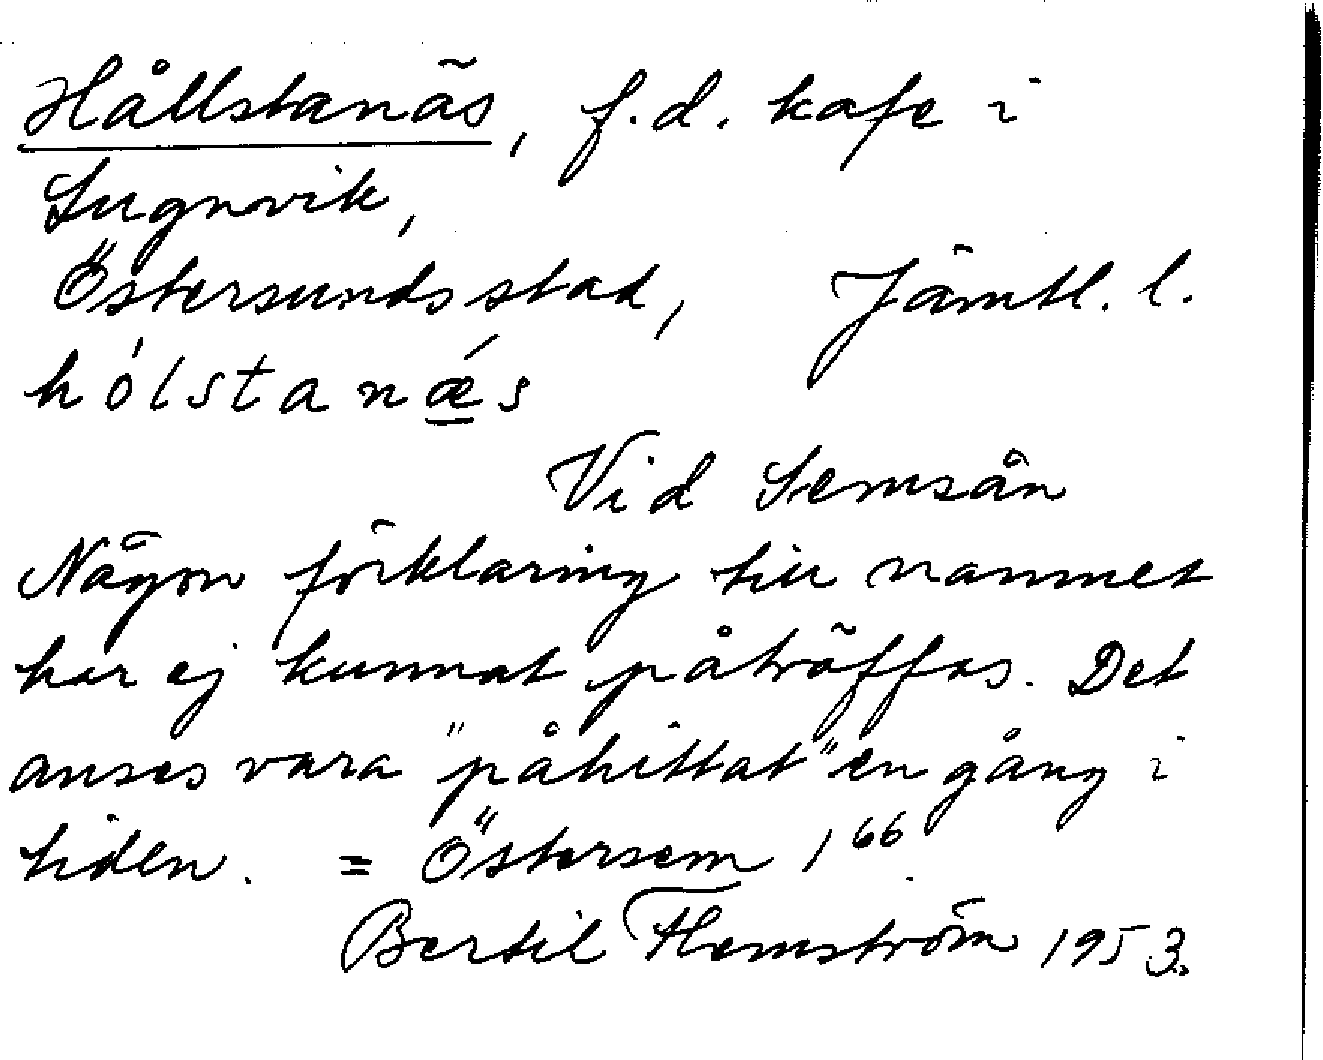 Hållstanäs, f.d. kafe i
Lugnvik,
Östersunds stad, Jämtl. l.
hólstanǽs
Vid Semsån
Någon förklaring till namnet
har ej kunnat påträffas. Det
anses vara "påhittat" en gång i
tiden. = Östersem 1⁶⁶
Bertil Flemström 1953.